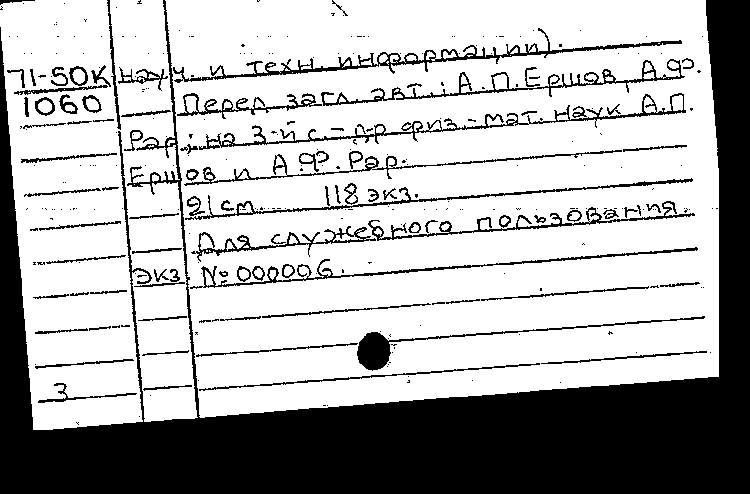 71-50К науч. и техн. информации).
1060 Перед загл. авт.: А.П.Ершов, А.Ф.
Рар; на 3-й с. - д-р физ.-мат. наук А.П.
Ершов и А.Ф. Рар.
21 см. 118 экз.
Для служебного пользования.
экз. № 000006.
3